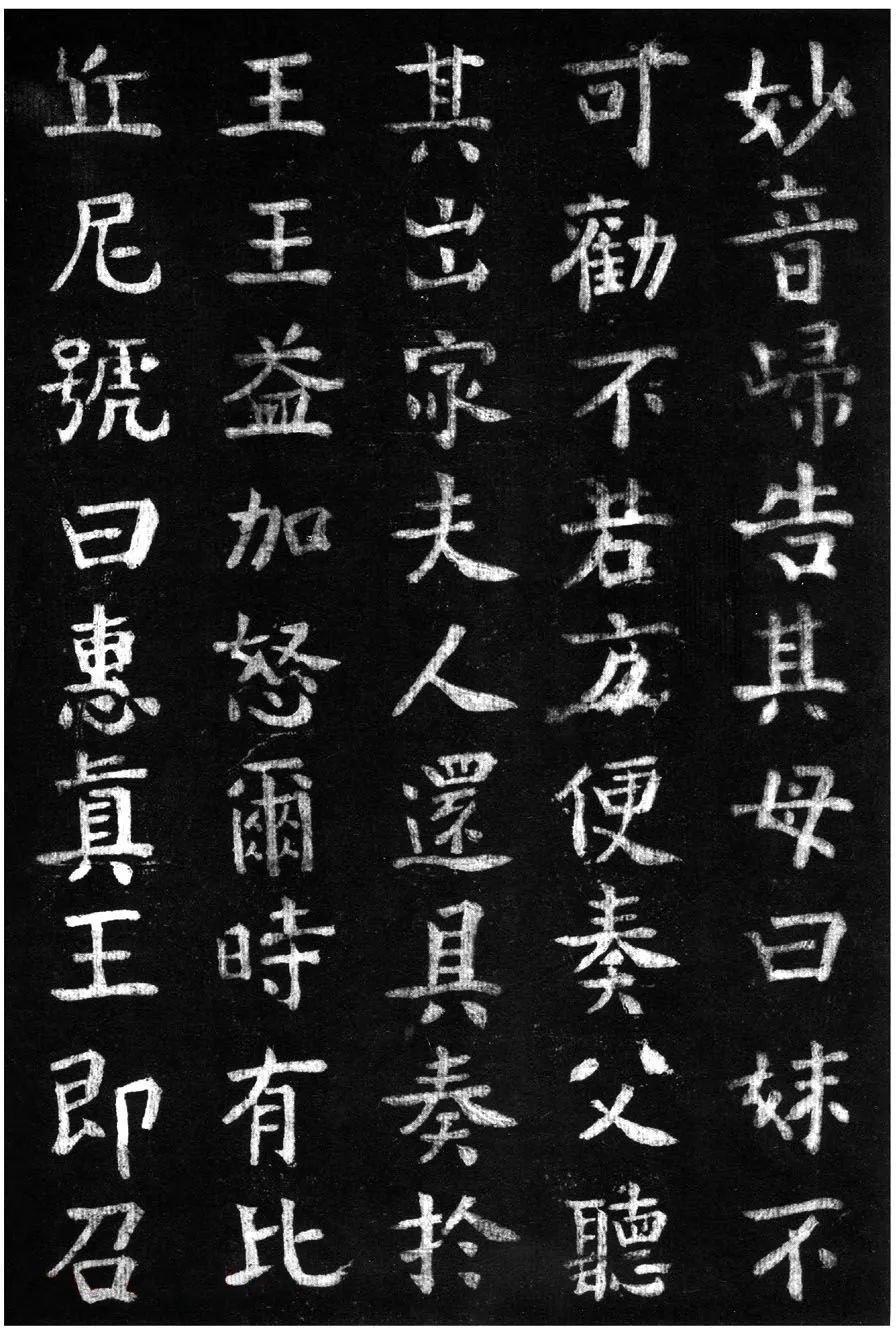 妙音歸告其母曰妹不
可勸不若方便奏父聽
其出家夫人還具奏於
王王益加怒爾時有比
丘尼號曰惠真王即召